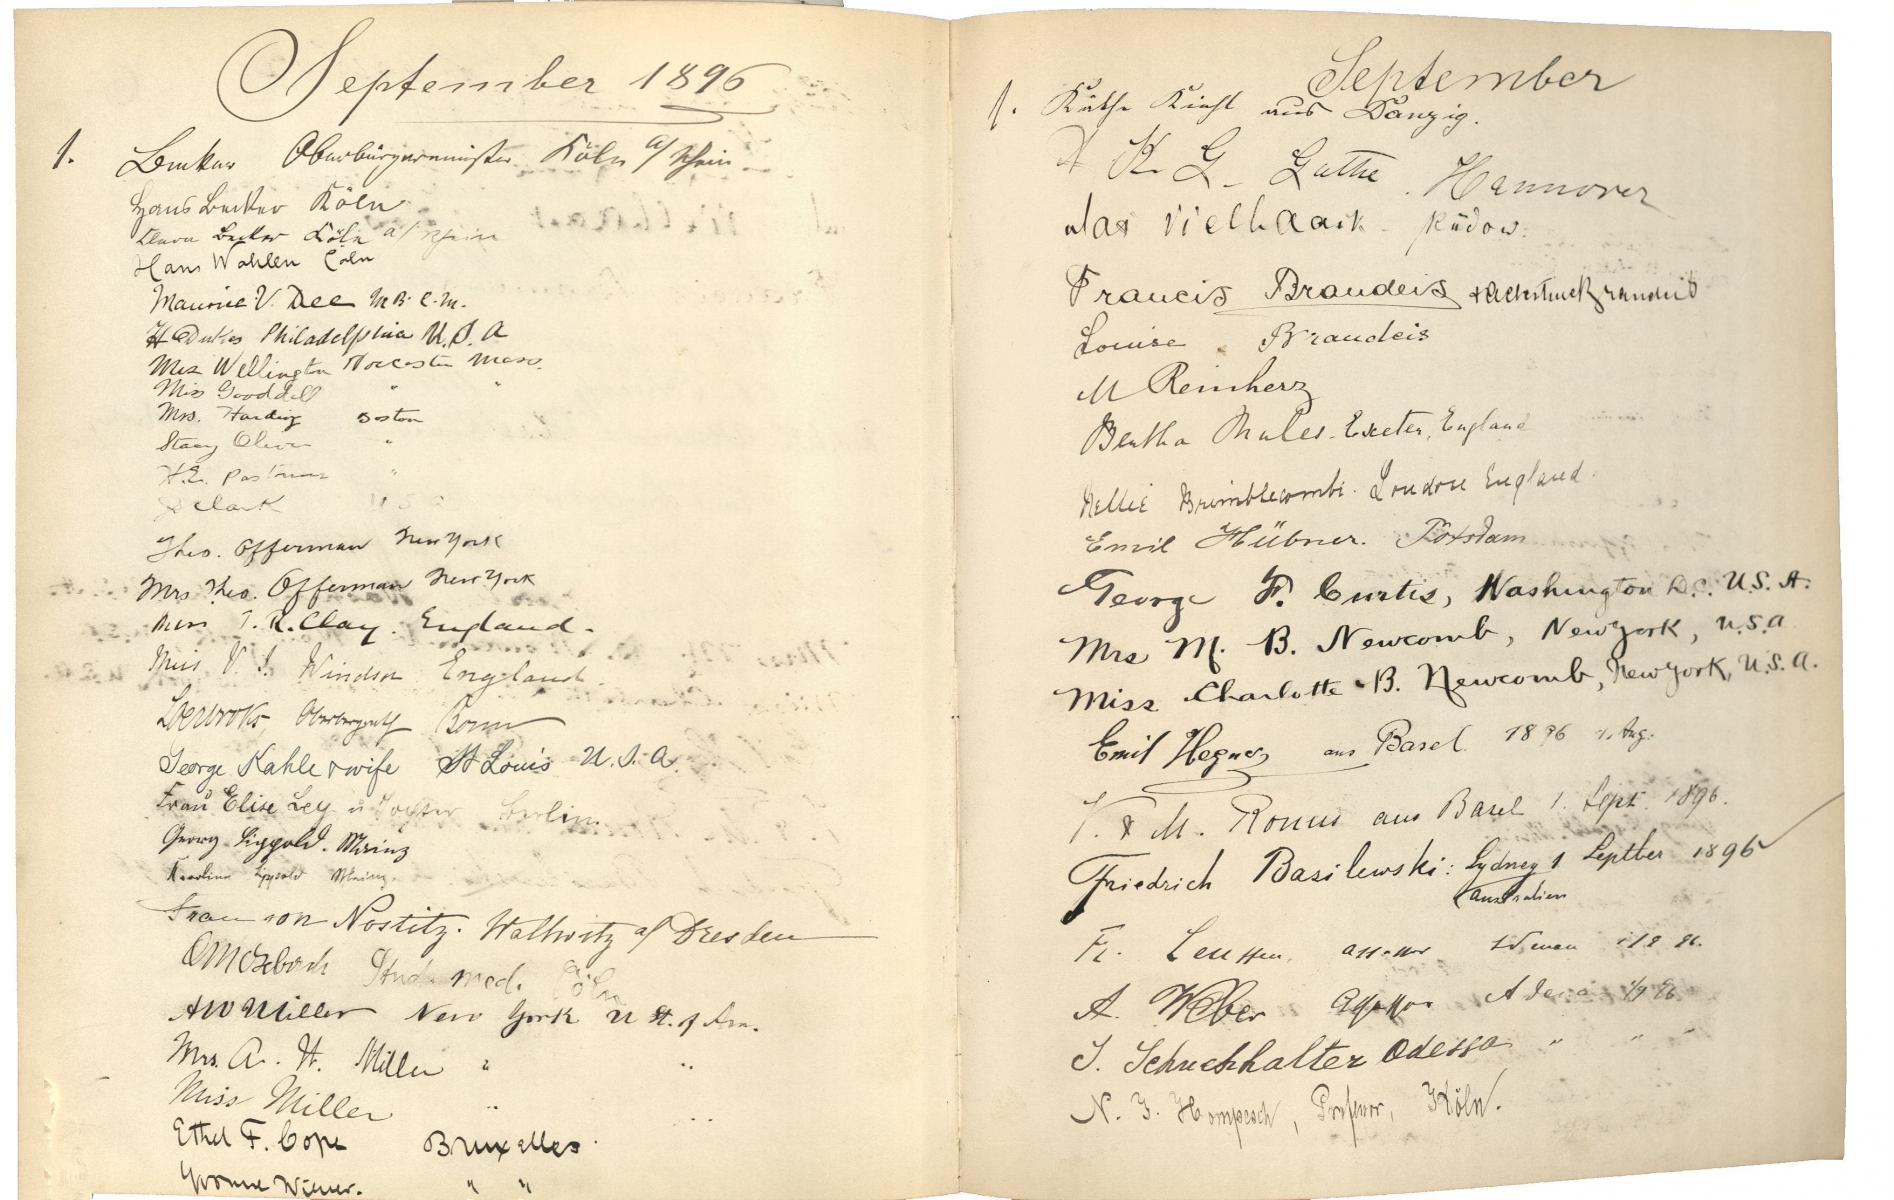 September 1896
1. Becker Oberbürgermeister Köln a/Rhein
Hans Becker Köln
Clara Becker Köln a/Rhein
Hans Wahlen Cöln
Maurice V. Dee M.B. C.M.
H Dukes Philadelphia U.S.A
Mrs Wellington Worcester Mass.
Miss Gooddell " "
Mrs. Harding Boston
Stacy Oliver "
H.E. "
Clark U S A
Theo. Offerman New York
Mrs Theo. Offerman New York
Miss T. R. Clay. England.
Miss V. I. Windsor England.
Oberbergrath Bonn
George Kahle & wife St Louis U.S.A.
Frau Elise Ley u Tochter Berlin.
Georg Lippold. Mainz
Karoline Lippold Mainz.
Frau von Nostitz-Wallwitz a/ Dresden
Stud. med. Cöln
A W Miller New York U St. of Am.
Mrs. A. W. Miller " "
Miss Miller " "
Ethel F. Cope Bruxelles.
Yvonne Wiener. " "
September
1. Käthe aus Danzig.
K. G. Hannover
Max Vielhaack Rüdow.
Francis Brandeis
Louise Brandeis
M Reinherz
Bertha Mules. Exeter, England
Nellie Brimblecombe. London England.
Emil Hübner. Potsdam
George F. Curtis, Washington D.C. U.S.A.
Mrs M. B. Newcomb, New York, U.S.A
Miss Charlotte B. Newcomb, New York, U.S.A.
Emil Hegner aus Basel. 1896 1. Aug.
V. & M. Romus aus Basel 1. Sept. 1896.
Friedrich Basilewski: Sydney 1 Septber 1896
Australien
Fr. Leussen, Assessor
A. Weber Assessor
J. Schuchhalter Odessa " " "
N. J. Hompesch, Professor, Köln.